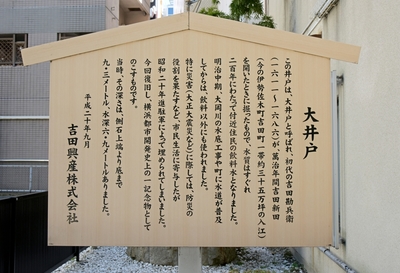 大井戸
この井戸は、大井戸と呼ばれ、初代の吉田勘兵衛
(一六一一～一六八六)が、萬治年間吉田新田
(今の伊勢佐木町吉田町一帯約三十五万坪の入江)
を開いた折に掘ったもので、水質はすぐれ
二百年にわたって付近住民の飲料水となりました。
明治中期、大岡川の水底工事や町に水道が普及
してからは、飲料以外にも使われました。
特に災害(大正大震災など)に際しては、防災の
役割を果たすなど、市民生活に寄与したが
昭和二十年進駐軍によって埋められてしまいました。
今回復旧し、横浜都市開発史上の一記念物として
のこすものです。
当時、その深さは、側石上端より底まで
九・三メートル、水深六・九メートルありました。
平成二十年九月
吉田興産株式会社